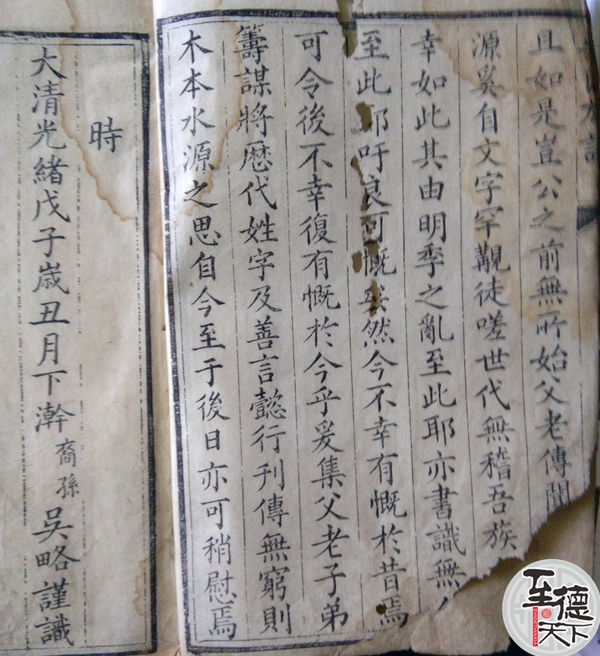 且如是豈公之前無所始父老傳聞
源奚自文字罕覯徒嗟世代無稽吾族
幸如此其由明季之亂至此耶亦書識無
至此耶吁良可慨矣然今不幸有慨於昔焉
可令後不幸復有慨於今乎爰集父老子弟
籌謀將厯代姓字及善言懿行刊傳無窮則
木本水源之思自今至于後日亦可稍慰焉
時
大清光緒戊子嵗丑月下澣裔孫吳略謹識
至德天下